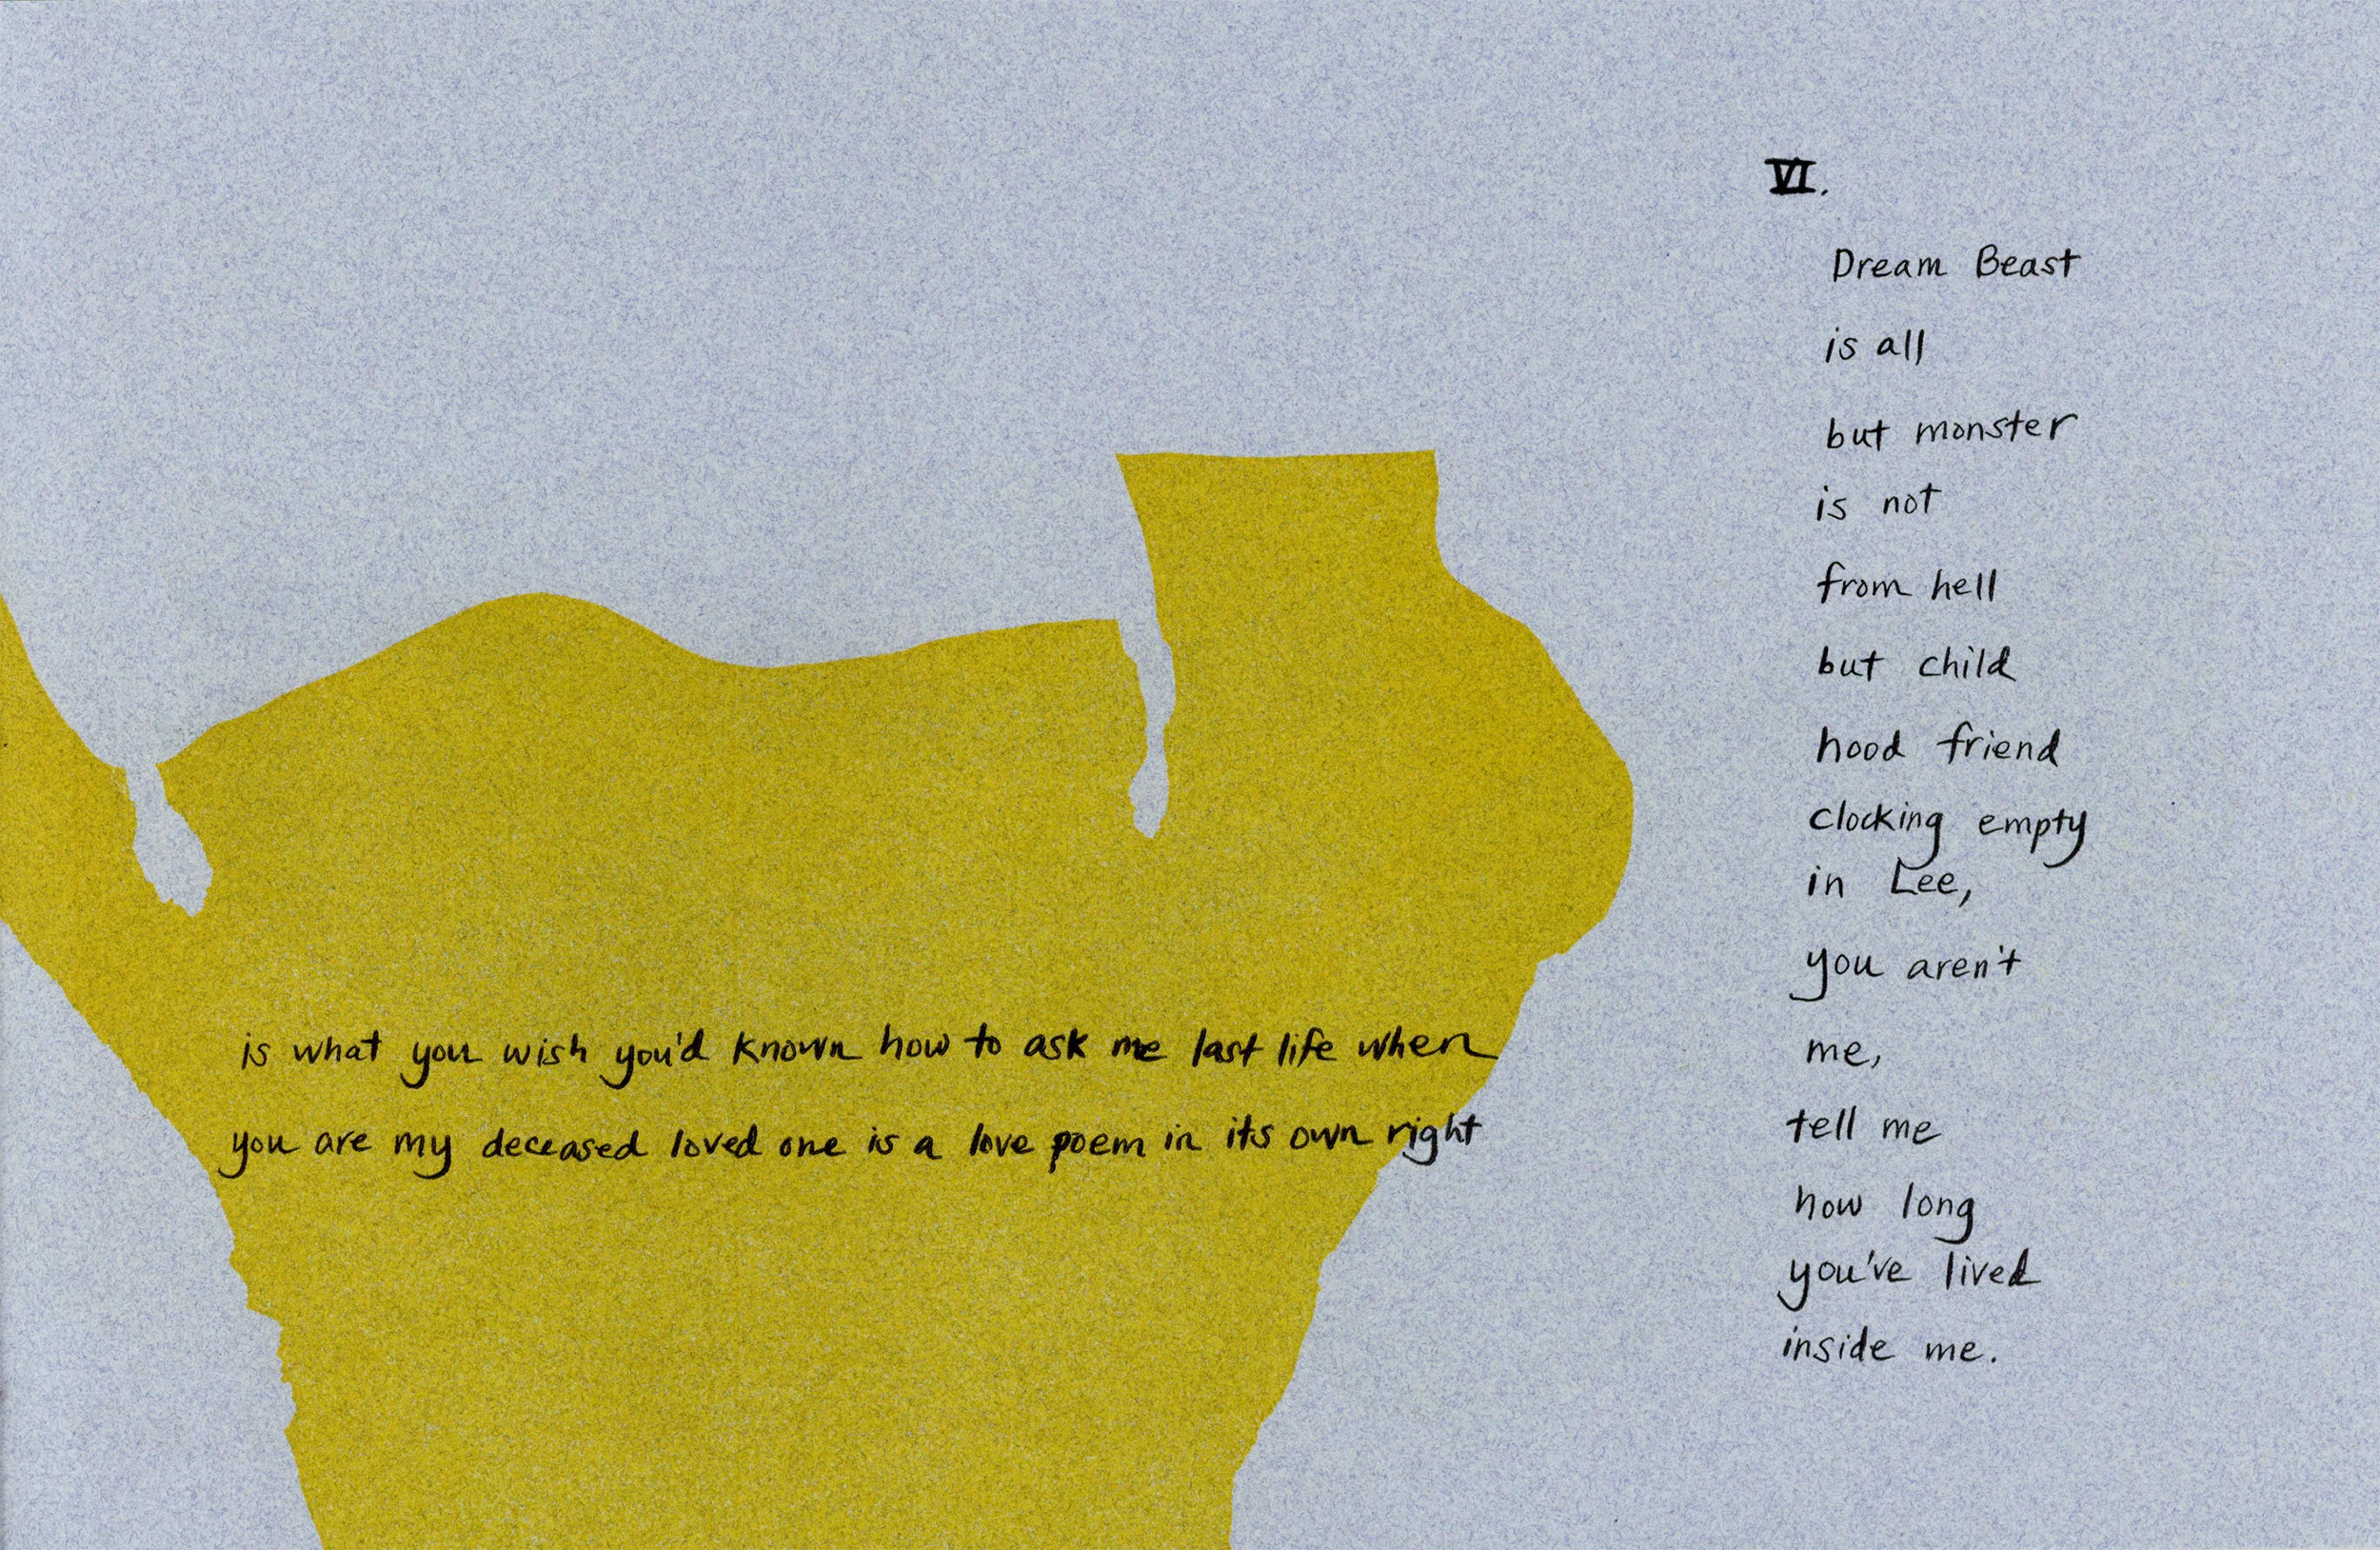 is what you wish you'd known how to ask me last life when
you are my deceased loved one is a love poem in its own right
VI.
Dream Beast
is all
but monster
is not
from hell
but child
hood friend
clocking empty
in Lee,
you aren't
me,
tell me
how long
you've lived
inside me.